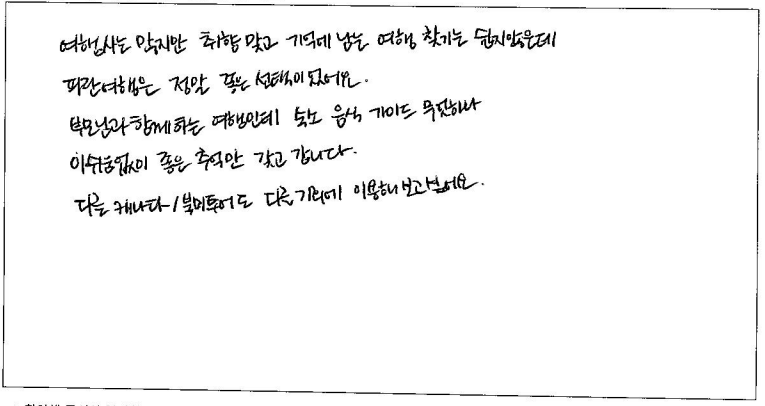 여행사는 많지만 취향 맞고 기억에 남는 여행 찾기는 쉽지않은데
파란여행은 정말 좋은 선택이 었어요.
부모님과 함께 하는 여행인데 숙소 음식 가이드 무엇하나
아쉬움없이 좋은 추억만 갖고 갑니다.
다른 캐나다/북미투어도 다른 기회에 이용해 보고싶어요.